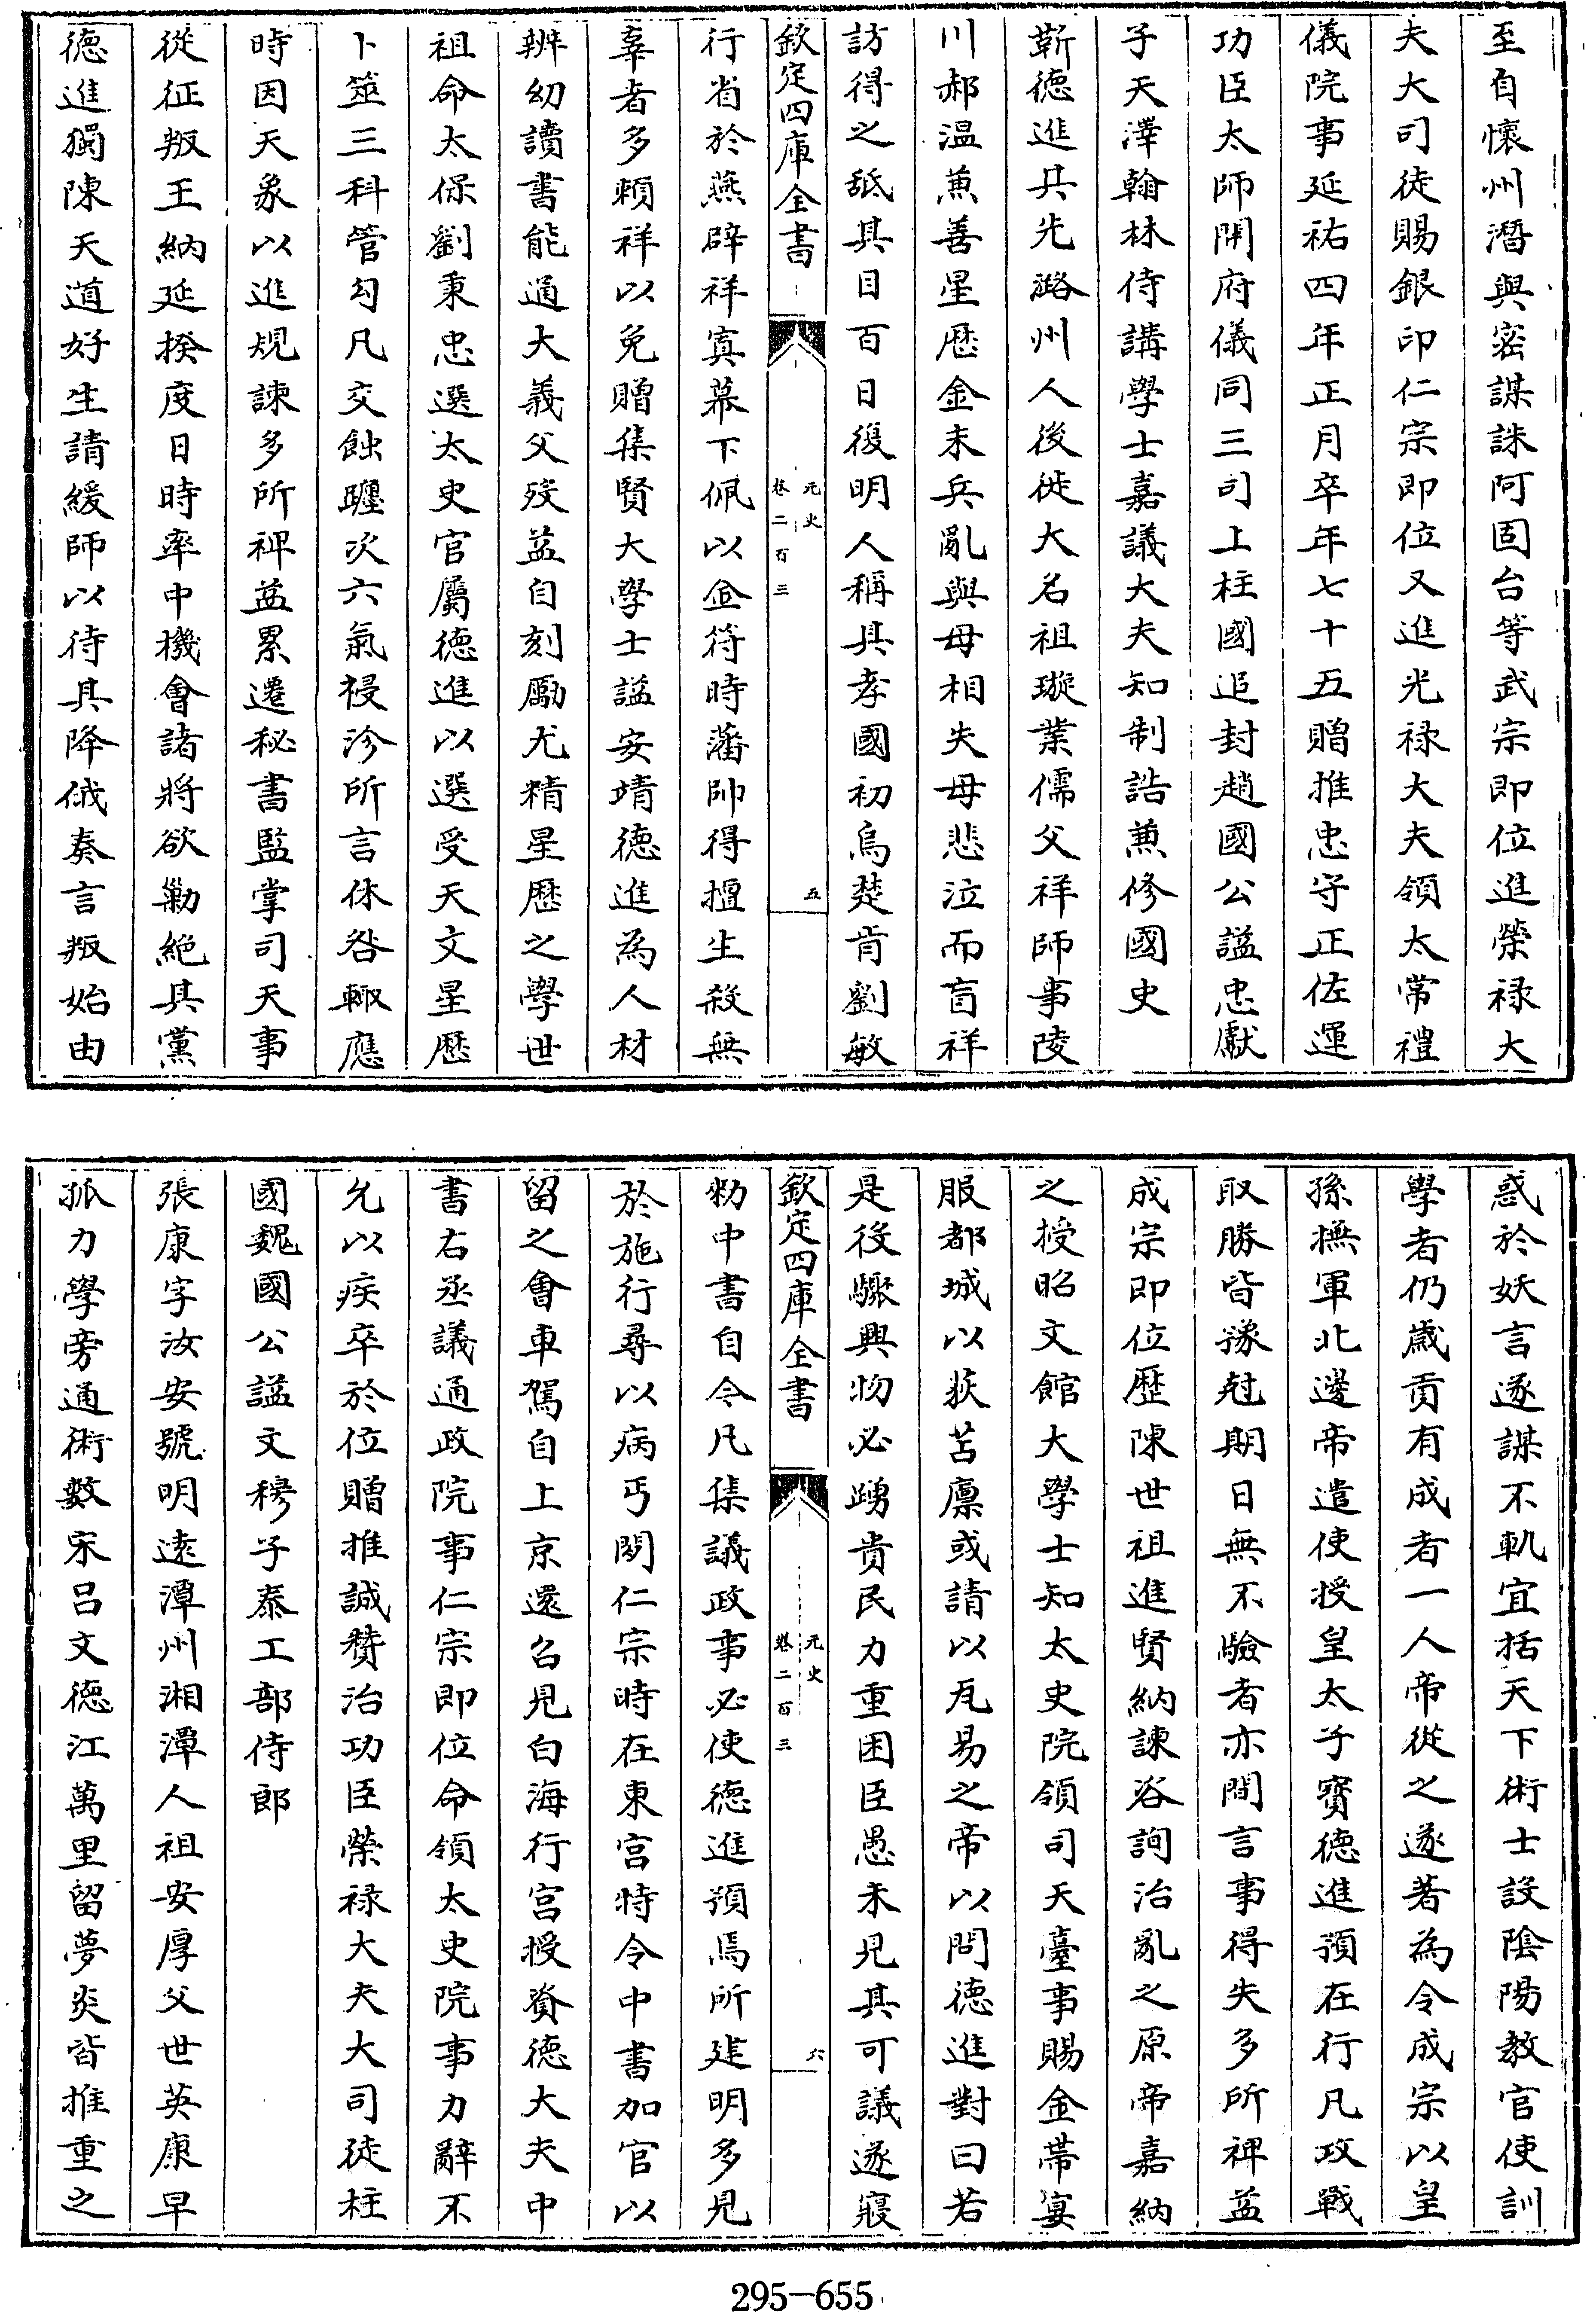 至自懷州潛與密謀誅阿固台等武宗即位進榮禄大
夫大司徒賜銀印仁宗即位又進光禄大夫領太常禮
儀院事延祐四年正月卒年七十五贈推忠守正佐運
功臣太師開府儀同三司上柱國追封趙國公諡忠獻
子天澤翰林侍講學士嘉議大夫知制誥兼修國史
靳德進其先潞州人後徙大名祖璇業儒父祥師事陵
川郝温兼善星歴金末兵亂與母相失母悲泣而盲祥
訪得之舐其目百日復明人稱其孝國初烏楚肯劉敏
欽定四庫全書
元史
卷二百三
五
行省於燕辟祥寘幕下佩以金符時藩帥得擅生殺無
辜者多頼祥以免贈集賢大學士諡安靖德進為人材
辨幼讀書能通大義父歿益自刻勵尤精星歴之學世
祖命太保劉秉忠選太史官屬德進以選受天文星歴
卜筮三科管勾凡交蝕躔次六氣祲沴所言休咎輒應
時因天象以進規諫多所裨益累遷秘書監掌司天事
從征叛王納延揆度日時率中機會諸將欲勦絶其黨
德進獨陳天道好生請緩師以待其降俄奏言叛始由
惑於妖言遂謀不軌宜括天下術士設隂陽教官使訓
學者仍歲貢有成者一人帝從之遂著為令成宗以皇
孫撫軍北邊帝遣使授皇太子寶德進預在行凡攻戰
取勝皆豫尅期日無不驗者亦間言事得失多所裨益
成宗即位歴陳世祖進賢納諫咨詢治亂之原帝嘉納
之授昭文館大學士知太史院領司天臺事賜金帶宴
服都城以荻苫廪或請以瓦易之帝以問德進對曰若
是役驟興物必踴貴民力重困臣愚未見其可議遂寢
欽定四庫全書
元史
卷二百三
六
勅中書自今凡集議政事必使德進預焉所建明多見
於施行尋以病丐閒仁宗時在東宫特令中書加官以
留之會車駕自上京還召見白海行宫授資德大夫中
書右丞議通政院事仁宗即位命領太史院事力辭不
允以疾卒於位贈推誠贊治功臣榮禄大夫大司徒柱
國魏國公諡文穆子泰工部侍郎
張康字汝安號明逺潭州湘潭人祖安厚父世英康早
孤力學旁通術數宋吕文德江萬里留夢炎皆推重之
295-655